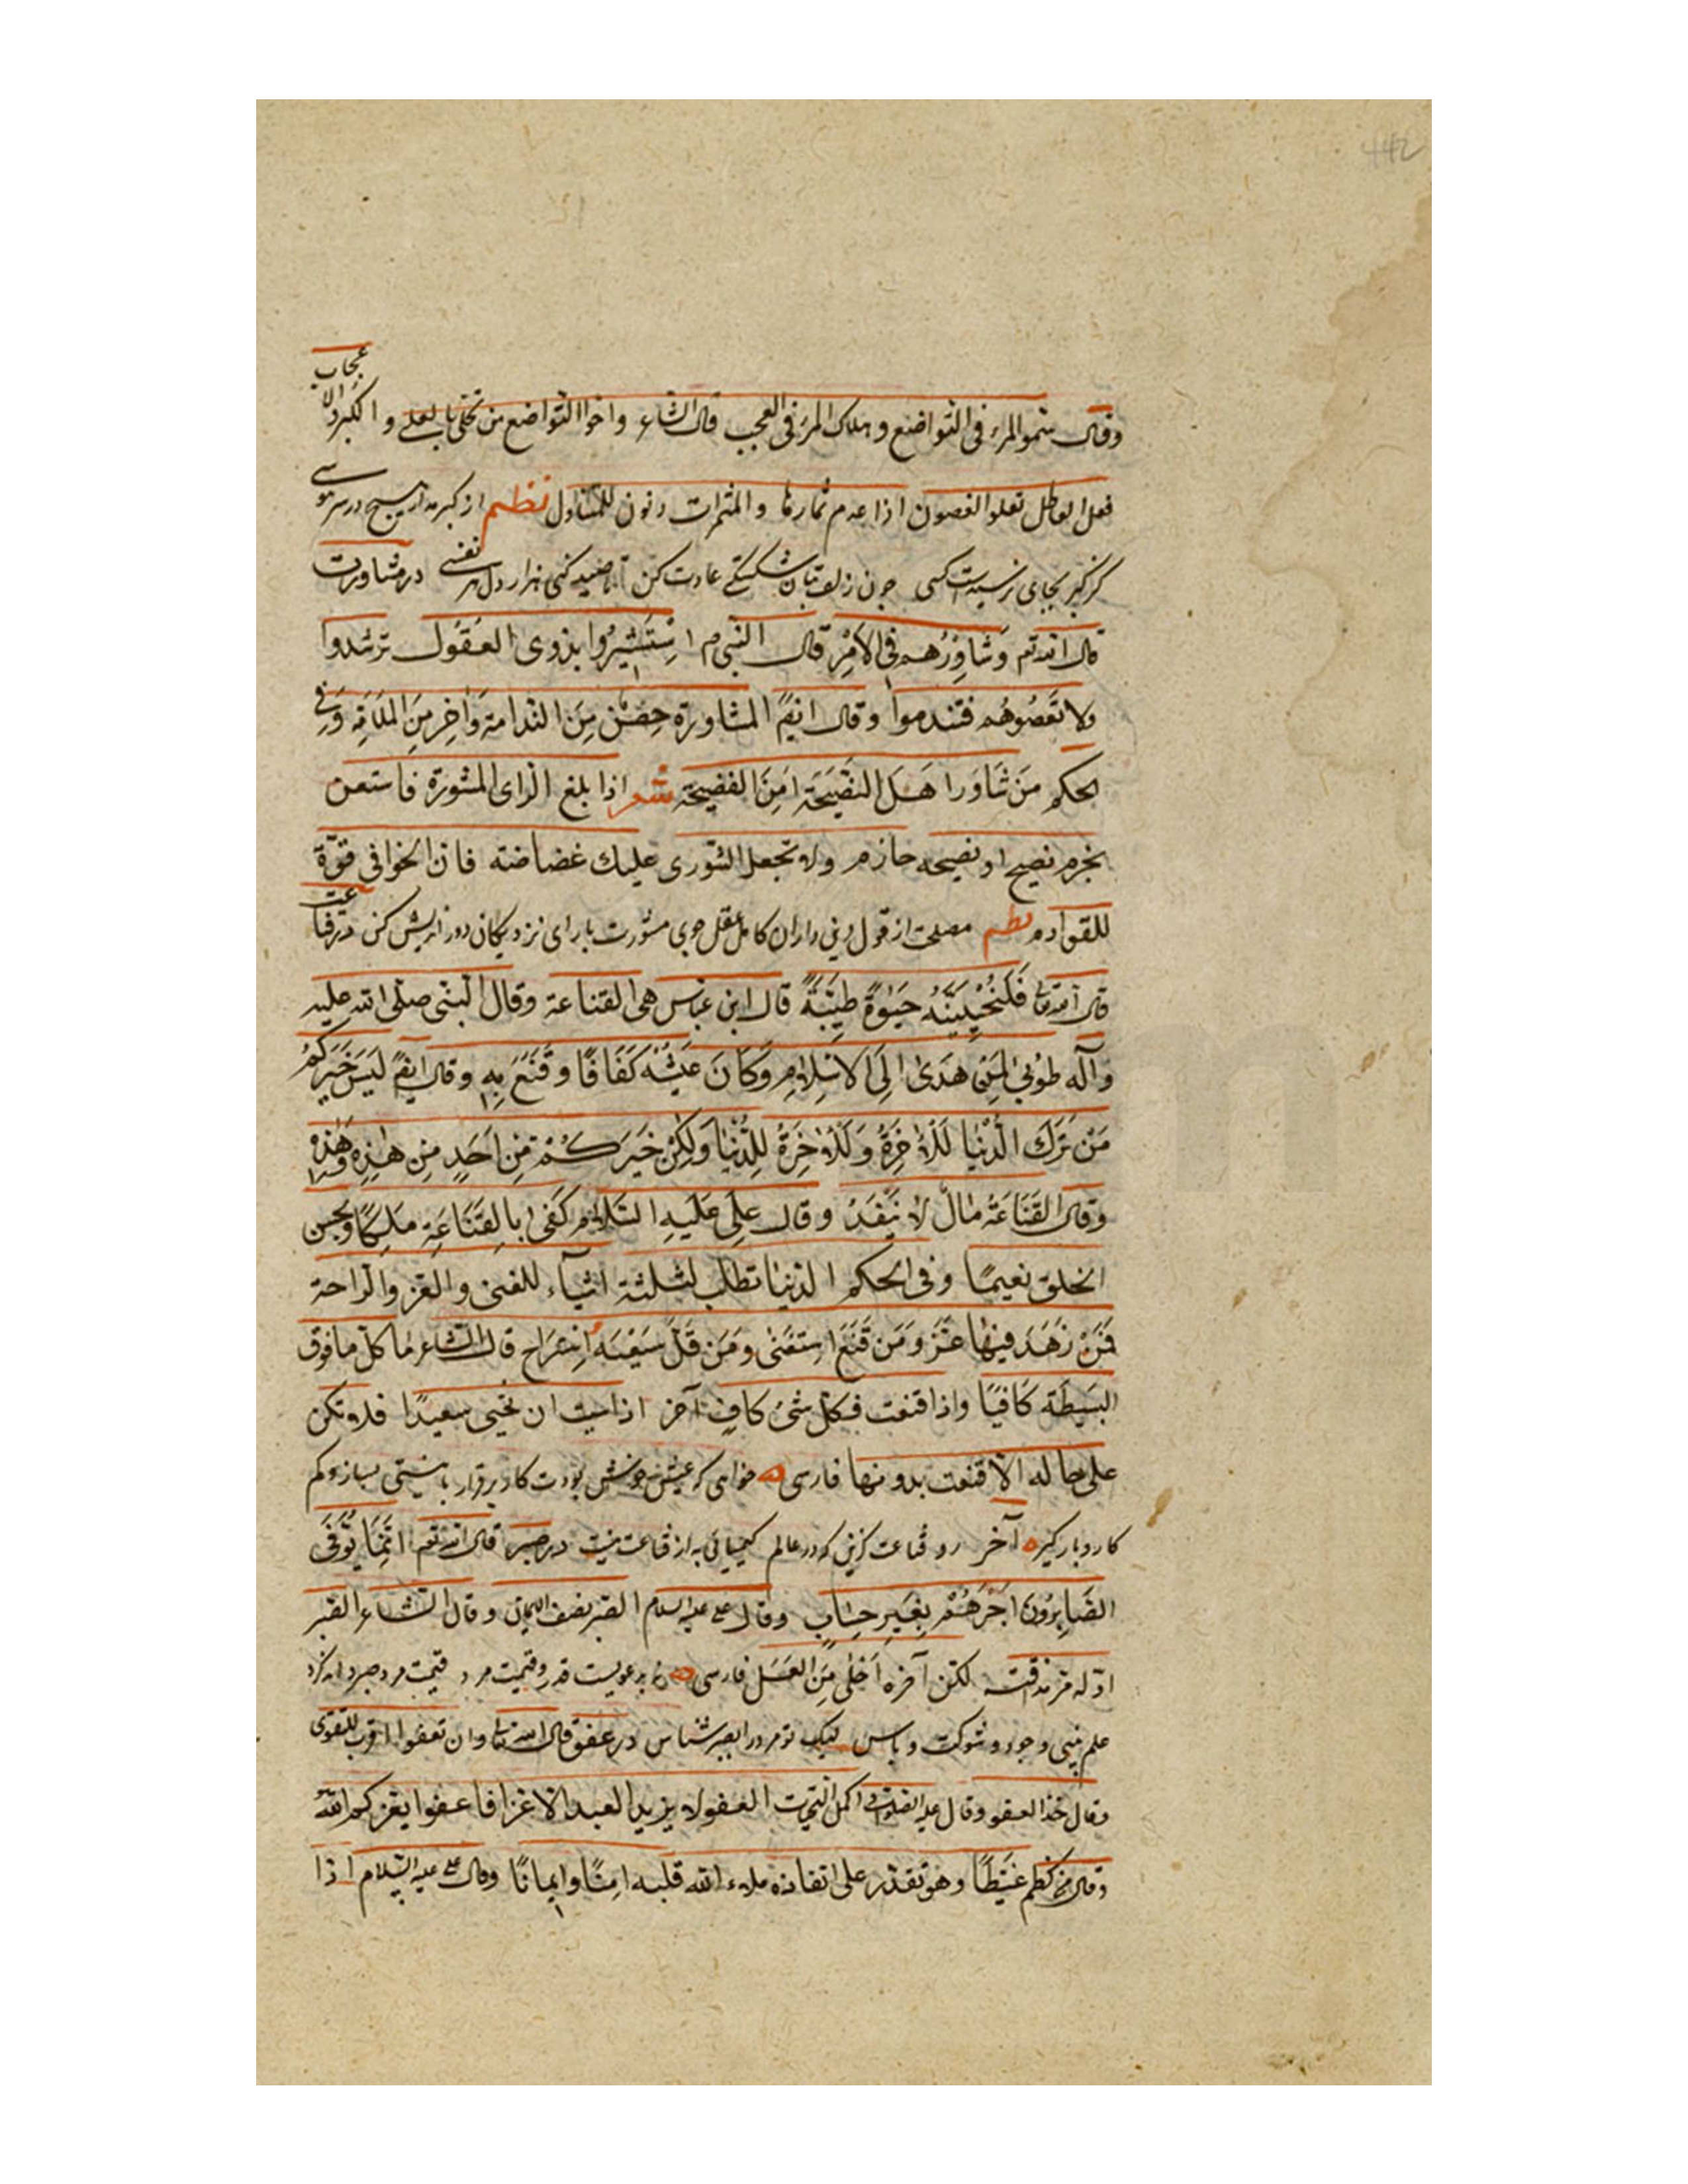 وقال سمو المرء فی التواضع و هلاک المرء فی العجب قال الشاعر واخوا التواضع من تحلی بالعلی و الکبر والاعجاب
فعل العاطل تعلوا الغصون اذا عدم ثمارها و المثمرات دنون للمتناول نظم از کبر مدار هیچ در سر هوسی
کز کبر بجای نرسیدست کسی چون زلف بتان شکستگی عادت کن تا صید کنی هزار دل هر نفسی در مشاورت
قال الله تع وَشاوِرْهُم فی الاَمْرِ قال النبی م اِسْتَشیرُوا بذوی العُقُول ترشدوا
ولا تَعصُوهُم فتندموا وقال ایضً المشاورة حِصْن مِنَ الندامة وَاخِر مِنَ المَلامَةِ وَفِی
الحکم مَن شَاوَرا هَلَ النَصیحَة اَمِنَ الفضیحة شعر اذا بلغ الرای المشورة فاستعن
بحزم نصیح او نصیحه حازم ولا تجعل الشوری علیك غضاضته فان الخوافی قوّة
للقوادم نظم مصلحت از قول دینی داران کامل عقل جوی مشورت با رای نزدیکان دور اندیش کن در قناعت
قال الله تعا فَلَنُحْیِیَنَّهُ حَیوٰةً طَیِّبَةً قال ابن عباس هی القناعة وقال النبی صلی الله علیه
وآله طُوبیٰ لِمَنْ هَدیٰ اِلَی الاسْلامِ وَکَانَ عَیْشُه کَفَافًا وَ قَنَعَ بِهِ وقال ایضً لَیسَ خَیَرکُم
مَنْ تَرَكَ الدُّنْیَا لِلاٰخِرَةِ وَلَلاٰخِرَةُ لِلدُّنْیَا وَلکِنْ خَیَرَکُمْ مَنِ اَحَدٍ مِن هٰذِهِ وَهٰذِهْ
وقال القَنَاعَةُ مٰال لا یَنْفَدُ وقال عَلِی عَلَیهِ السَّلام کَفیٰ بِالقَنَاعَةِ مَلِکًا وبحسن
الخلق نعیمًا وفی الحکم الدنیا تطلب لثلثة اشیآء للغنی والعز والراحة
فَمَنْ زَهَدَ فیهٰا عَزَّ وَمَن قَنَعَ اِستَغنٰی وَمَن قَلَّ سَعْیُه اِستَراحَ قال الشاعر مٰا کل ما فوق
البَسیطَة کَافیًا واذا قنعت فکل شیئ کافٍ آخر اذا شیت ان تحیی سعیدًا فلا تکن
علی حاله الّا قنعت بدونها فارسی خواهی که عیش خوشش بودت کار برقرار با نیستی بساز و کم
کار و بار گیر آخر رو قناعت گزین که در عالم کیمیائی به از قناعت نیست در صبر قال الله تعم اِنَّمَا یُوَفَّی
الصّٰابِرُونَ اَجْرَهُمْ بِغَیرِ حِسٰابٍ وقال علی علیه السلام الصبر نصف الایمان وقال الشاعر الصبر
اوّله مرّ مذاقته لکن آخره اَحلٰی مِنَ العَسَل فارسی قدر و قیمت مرد قیمت مرد صبر داند کرد
علم بینی و جود و شوکت و باس لیک تو مرد را بصبر شناس در عفو قال الله تعا وان تعفوا اقرب للتقوی
وقال خذ العفو وقال علیه الصلوة و اکمل التحیات العفو لا یزید العبد الا عزا فاعفوا یعزکم الله
وقال من کظم غَیظًا وهو تقدر علی انفاذه ملاء الله قلبه اَمنًا وایمانًا وقال علی علیه السّلام اذا